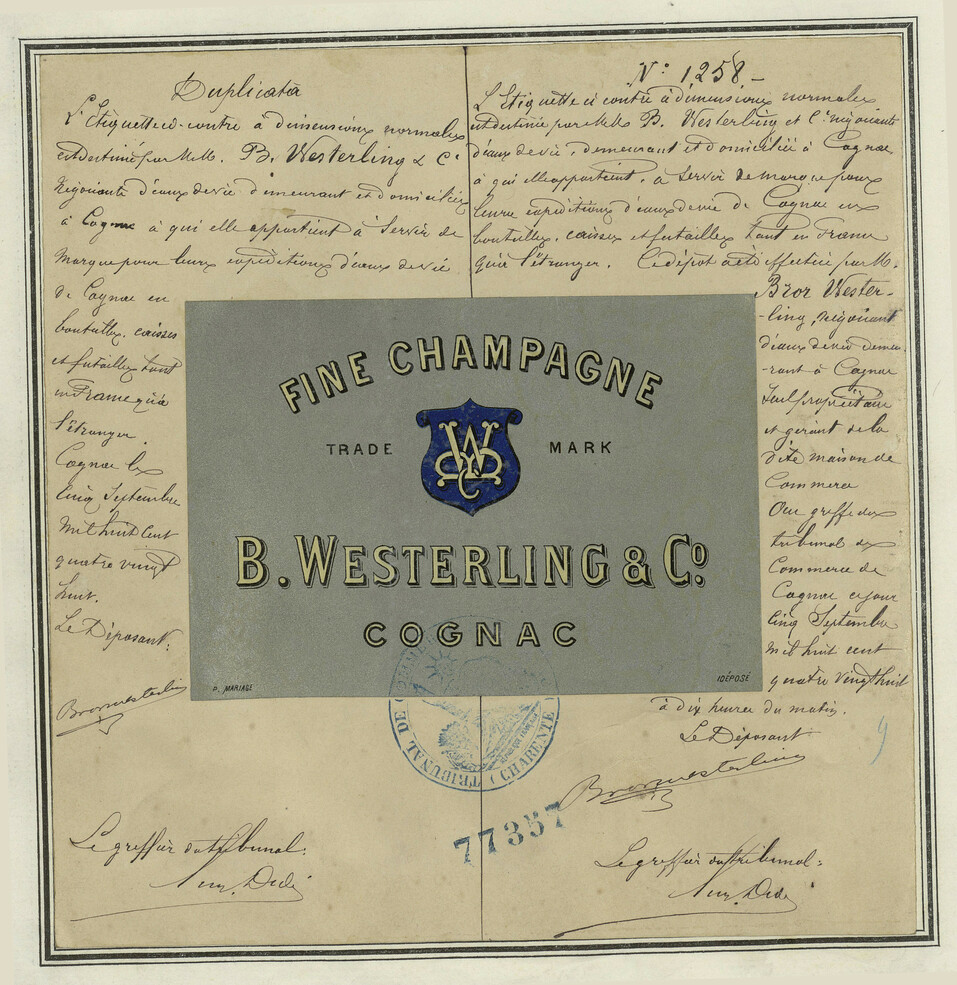 Duplicata
L'Etiquette ci-contre à dimensions normales
est destinée par M.M. B. Westerling & Cie
Négociants d'eaux de vie demeurant et domiciliés
à Cognac à qui elle appartient à Servir de
Marque pour leurs expéditions d'eaux de vie
de Cognac en
bouteilles, caisses
et futailles tant
en France qu'à
l'étranger.
Cognac le
cinq Septembre
Mil huit cent
quatre vingt
huit.
Le Déposant:
Bror Westerling
Le greffier du tribunal:
N° 1258 -
L'Etiquette ci contre à dimensions normales
est destinée par M.M. B. Westerling et Cie négociants
d'eaux de vie, demeurant et domiciliés à Cognac
à qui elle appartient, à Servir de marque pour
leurs expéditions d'eaux de vie de Cognac en
bouteilles, caisses et futailles tant en France
qu'à l'étranger. Ce dépôt a été effectué par M.
Bror Wester-
-ling, négociant
d'eaux de vie demeu-
-rant à Cognac
Seul propriétaire
et gérant de la
dite maison de
Commerce
Au greffe du
tribunal de
Commerce de
Cognac ce jour
cinq Septembre
mil huit cent
quatre vingt huit
à dix heures du matin.
Le Déposant
Bror Westerling
Le greffier du tribunal:
FINE CHAMPAGNE
TRADE MARK
B. WESTERLING & Co
COGNAC
P. MARIAGE
DÉPOSÉ
TRIBUNAL DE
(CHARENTE)
77357